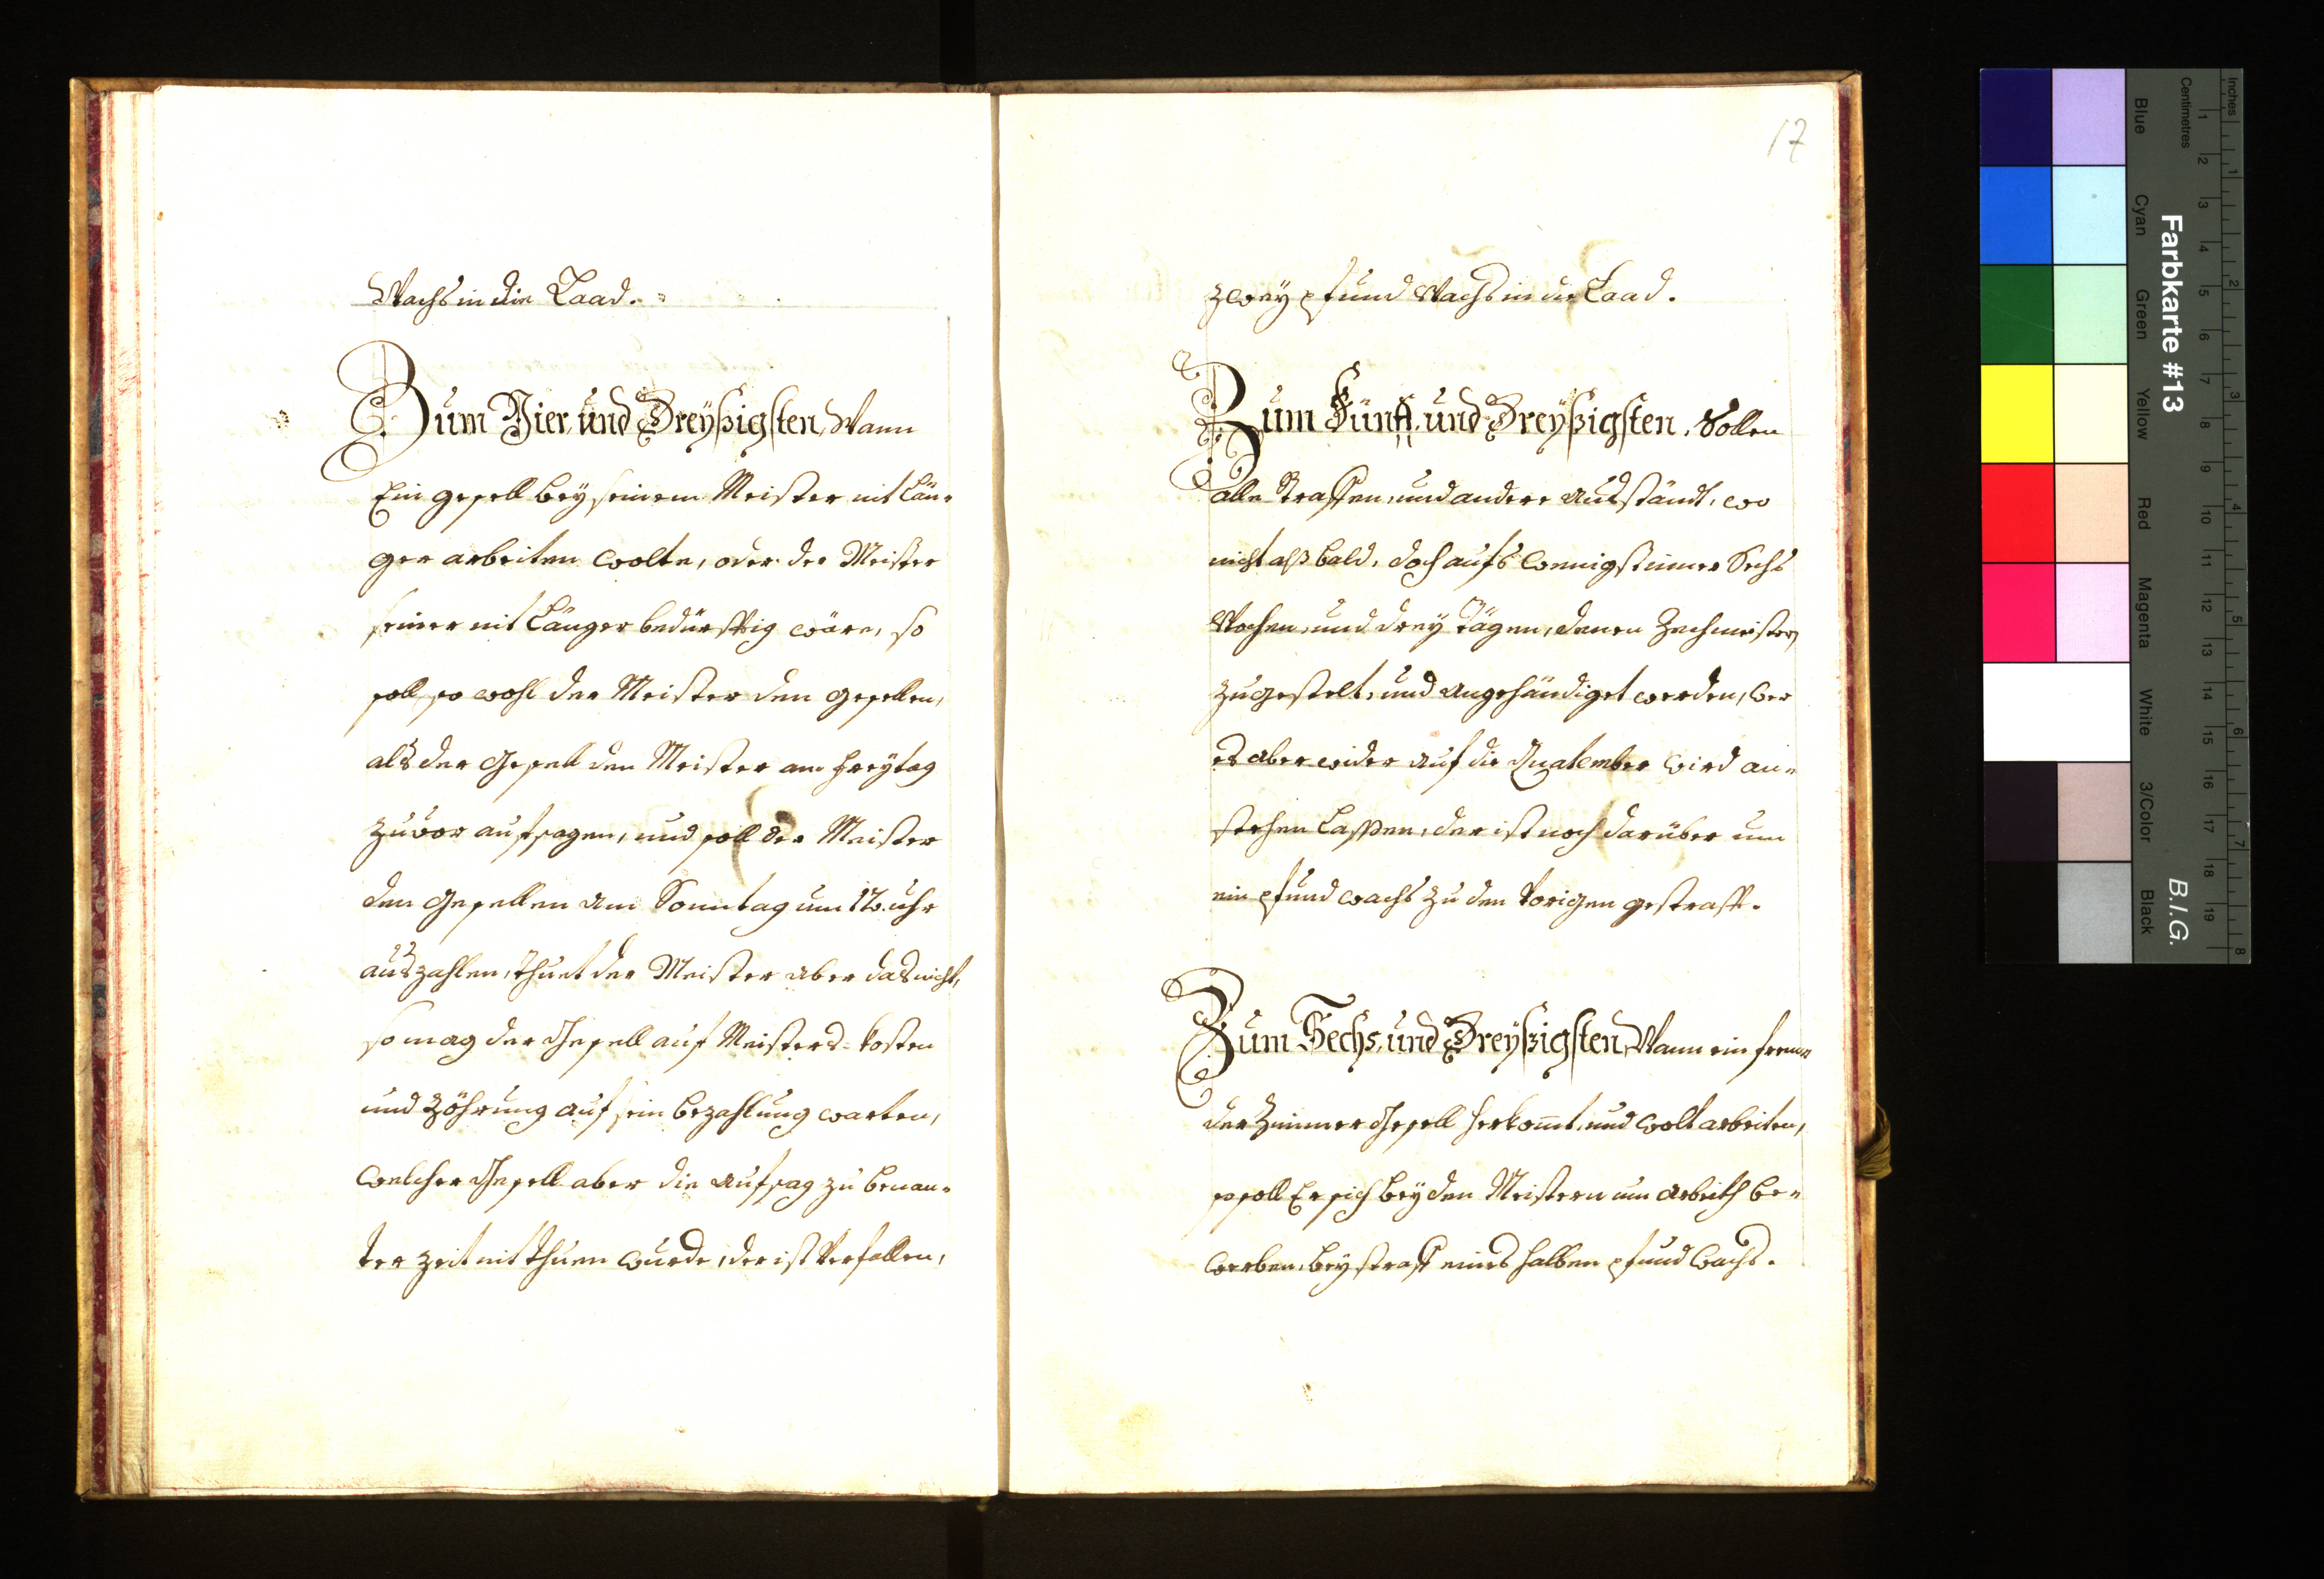 Wachs in die Laad.
Zum Vier, und Dreyßigsten, Wann
Ein gesell bey seinem Meister nit Län-
ger arbeiten wolte, oder der Meister
seiner nit Länger bedürfftig wäre, so
soll so wohl der Meister den gesellen,
als der Gesell den Meister am Freytag
zuvor aufsagen, und soll der Meister
den Gesellen am Sonntag um 12. uhr
auszahlen, thuet der Meister aber das nicht,
so mag der Gesell auf Meisters-kosten
und Zöhrung auf sein bezahlung warten,
welcher Gesell aber die aufsag zu benan-
ter zeit nit thuen wurde, der ist Verfallen,
17
zwey pfund Wachs in die Laad.
Zum Fünff, und Dreyßigsten, Sollen
alle Straffen, und andere ausständt, wo
nicht alßbald, doch aufs wenigst inner Sechs
Wochen, und drey Tägen, denen Zechmeistern
zugestelt, und angehändiget werden, wer
es aber wider auf die Quatember wird an-
stehen Lassen, der ist noch darüber um
ein pfund wachs zu den Vorigen gestrafft.
Zum Sechs, und Dreyßigsten, Wann ein frem-
der Zimmer Gesell herkom̄t, und wolt arbeiten,
so soll Er sich bey den Meistern um arbeith be-
werben, bey straff eines halben pfund Wachs.
Inches
Centimetres
Farbkarte #13
B.I.G.
Blue
Cyan
Green
Yellow
Red
Magenta
White
3/Color
Black
1 2 3 4 5 6 7 8 9 10 11 12 13 14 15 16 17 18 19
1 2 3 4 5 6 7 8